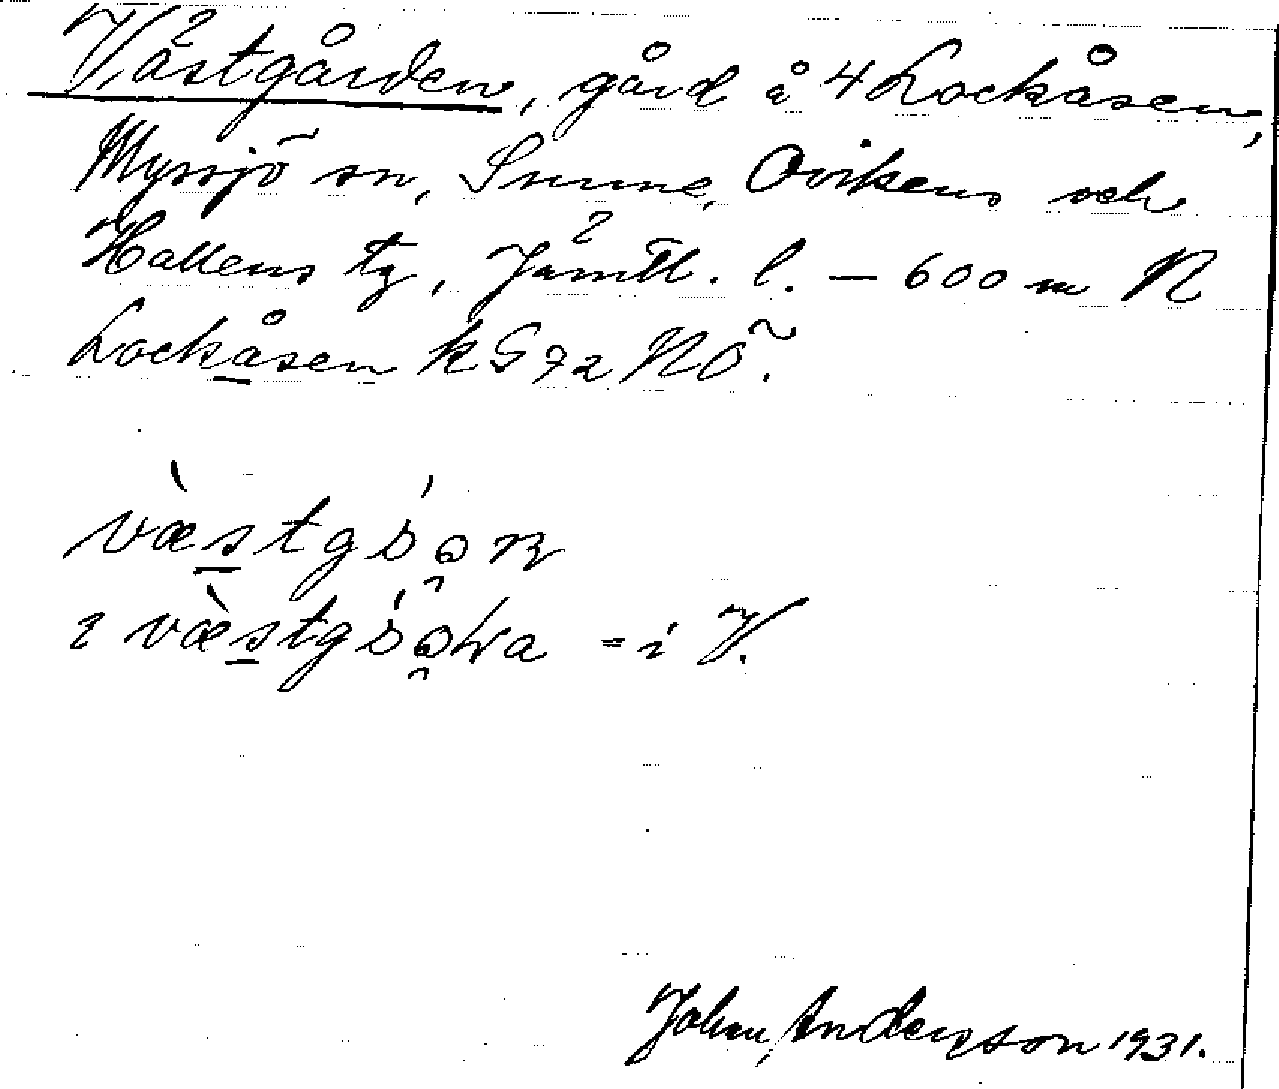 Västgården, gård å 4 Lockåsen,
Myssjö sn, Sunne, Ovikens och
Hallens tg, Jämtl. l. – 600 m N
Lockåsen kG 72 NÖ.
i = i V.
John Andersson 1931.